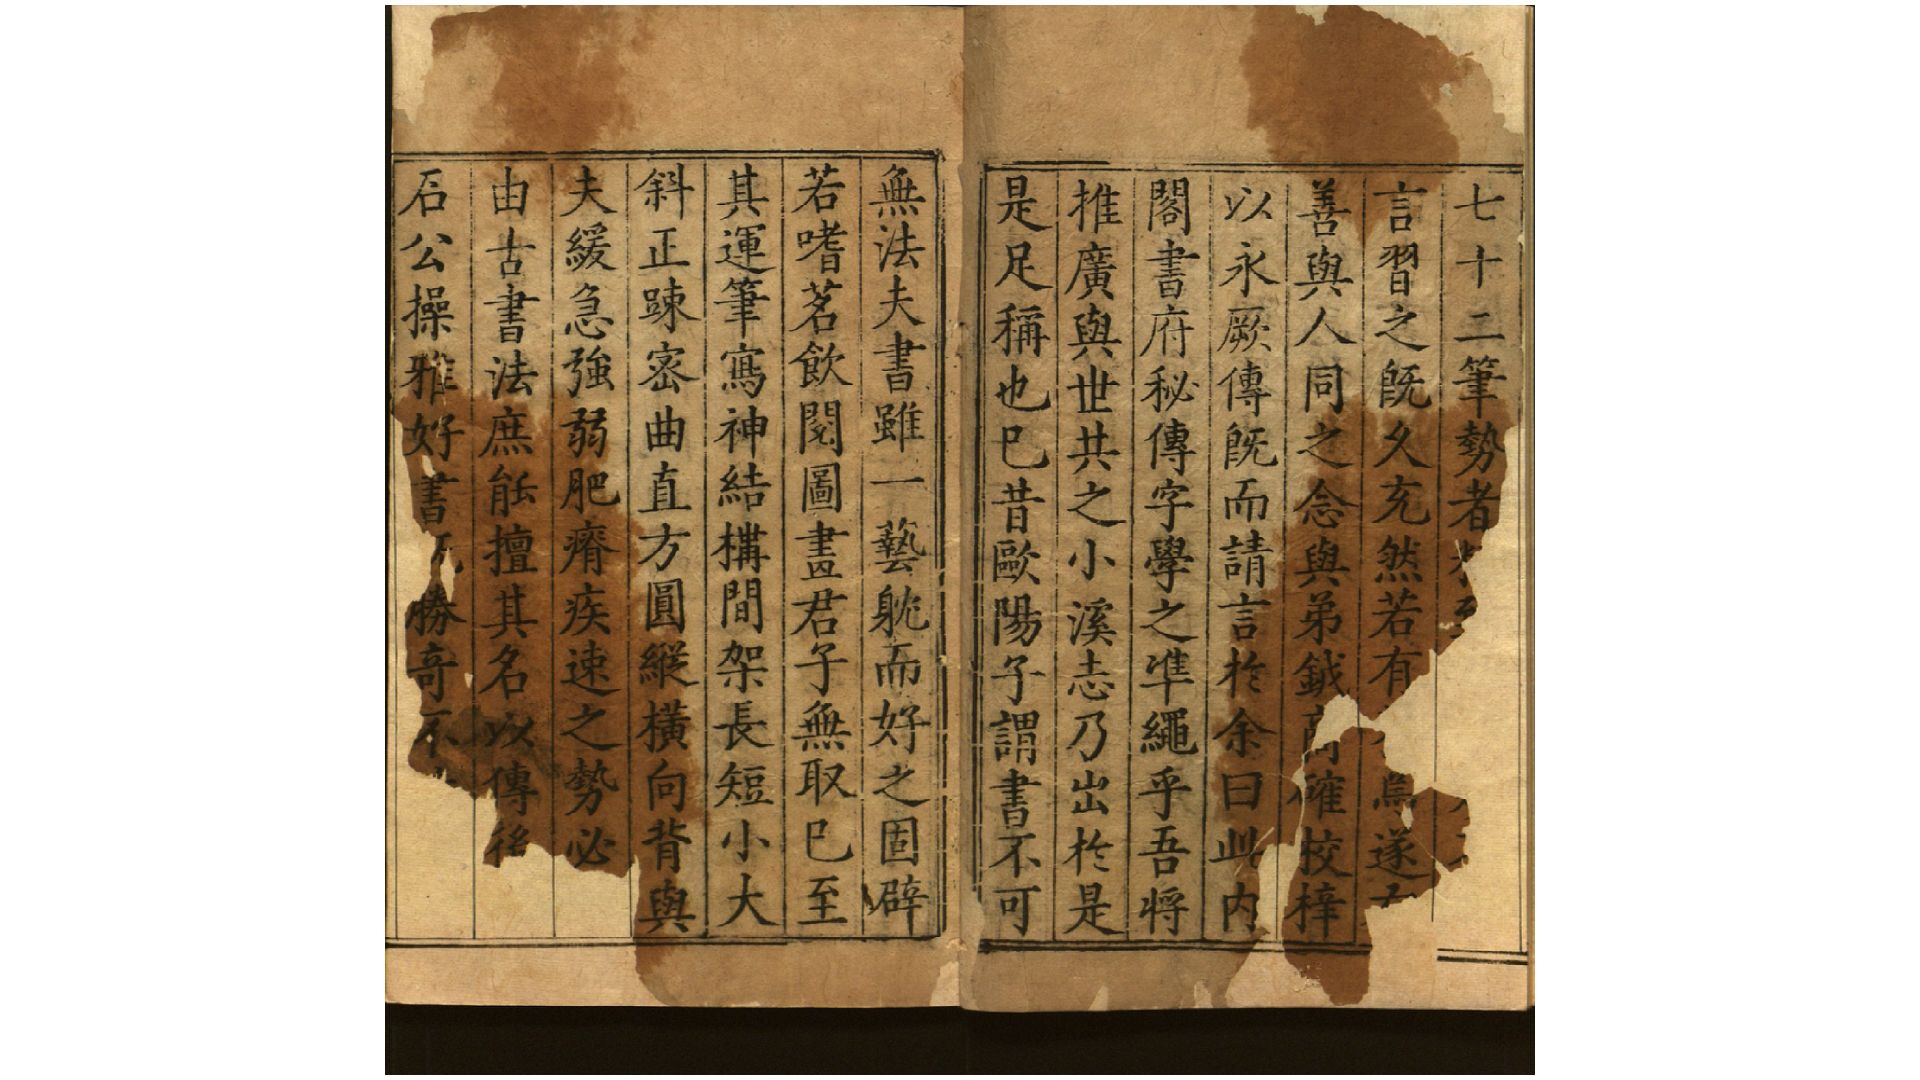 七十二筆勢者
言習之旣久充然若有焉遂
善與人同之念與弟鉞商確挍梓
以永厥傳旣而請言於余曰此內
閣書府秘傳字學之準繩乎吾將
推廣與世共之小溪志乃出於是
是足稱也已昔歐陽子謂書不可
無法夫書雖一藝躭而好之固辟
若嗜茗飲閱圖畫君子無取已至
其運筆寫神結構間架長短小大
斜正踈密曲直方圓縱橫向背與
夫緩急強弱肥瘠疾速之勢必
由古書法庶能擅其名以傳後
石公操雅好書勝奇不